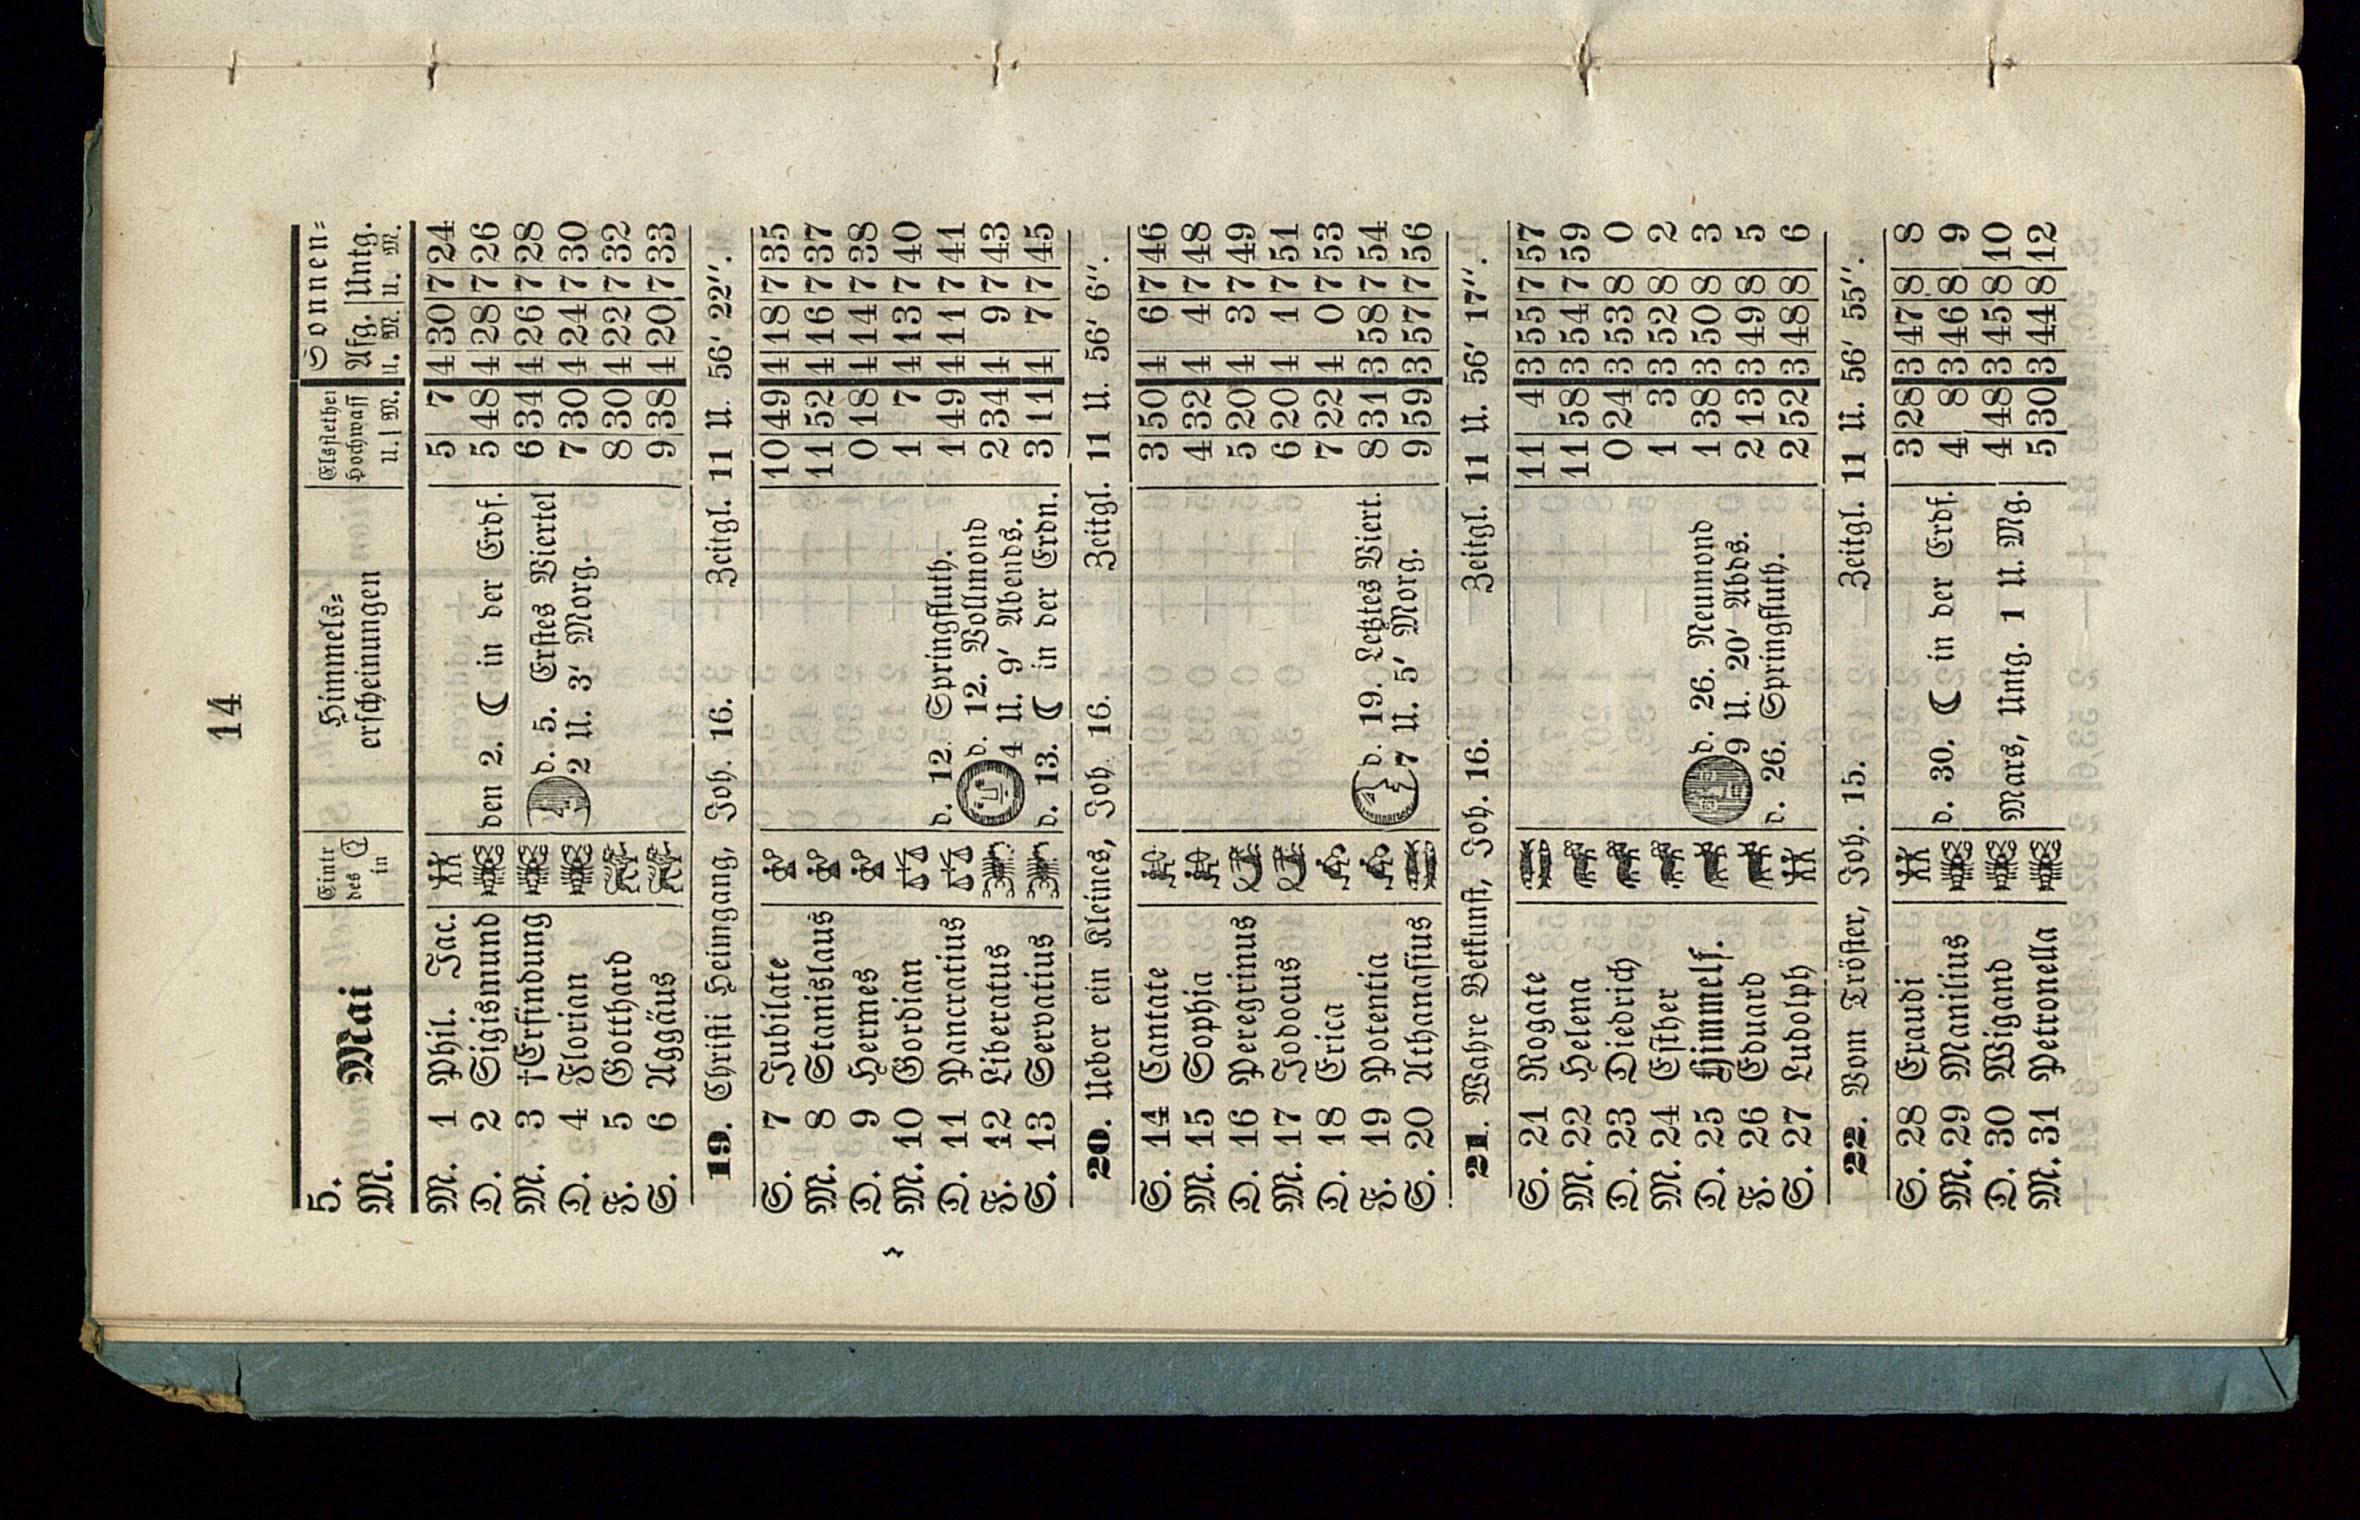 14
5. Mai Eintr Himmels= Elsflether Sonnen=
M. des in erscheinungen Hochwass Afg. Untg.
U. M. U. M. U. M.
M. 1 Phil. Jac. 5 7 4 30 7 24
D. 2 Sigismund den 2. ☾ in der Erdf. 5 48 4 28 7 26
M. 3 †Erfindung d. 5. Erstes Viertel 6 34 4 26 7 28
D. 4 Florian 2 U. 3' Morg. 7 30 4 24 7 30
F. 5 Gotthard 8 30 4 22 7 32
S. 6 Aggäus 9 38 4 20 7 33
19. Christi Heimgang, Joh. 16. Zeitgl. 11 U. 56' 22''.
S. 7 Jubilate 10 49 4 18 7 35
M. 8 Stanislaus 11 52 4 16 7 37
D. 9 Hermes 0 18 4 14 7 38
M. 10 Gordian 1 7 4 13 7 40
D. 11 Pancratius d. 12. Springfluth. 1 49 4 11 7 41
F. 12 Liberatus d. 12. Vollmond 2 34 4 9 7 43
4 U. 9' Abends.
S. 13 Servatius d. 13. ☾ in der Erdn. 3 11 4 7 7 45
20. Ueber ein Kleines, Joh 16. Zeitgl. 11 U. 56' 6''.
S. 14 Cantate 3 50 4 6 7 46
M. 15 Sophia 4 32 4 4 7 48
D. 16 Peregrinus 5 20 4 3 7 49
M. 17 Jodocus 6 20 4 1 7 51
D. 18 Erica 7 22 4 0 7 53
F. 19 Potentia d. 19. Letztes Viert. 8 31 3 58 7 54
S. 20 Athanasius 7 U. 5' Morg. 9 59 3 57 7 56
21. Wahre Betkunst, Joh. 16. Zeitgl. 11 U. 56' 17''.
S. 21 Rogate 11 4 3 55 7 57
M. 22 Helena 11 58 3 54 7 59
D. 23 Diedrich 0 24 3 53 8 0
M. 24 Esther 1 3 3 52 8 2
D. 25 Himmelf. d. 26. Neumond 1 38 3 50 8 3
F. 26 Eduard 9 U. 20' Abds. 2 13 3 49 8 5
S. 27 Ludolph d. 26. Springfluth. 2 52 3 48 8 6
22. Vom Tröster, Joh. 15. Zeitgl. 11 U. 56' 55''.
S. 28 Exaudi 3 28 3 47 8 8
M. 29 Manilius d. 30. ☾ in der Erdf. 4 8 3 46 8 9
D. 30 Wigand 4 48 3 45 8 10
M. 31 Petronella Mars, Untg. 1 U. Mg. 5 30 3 44 8 12